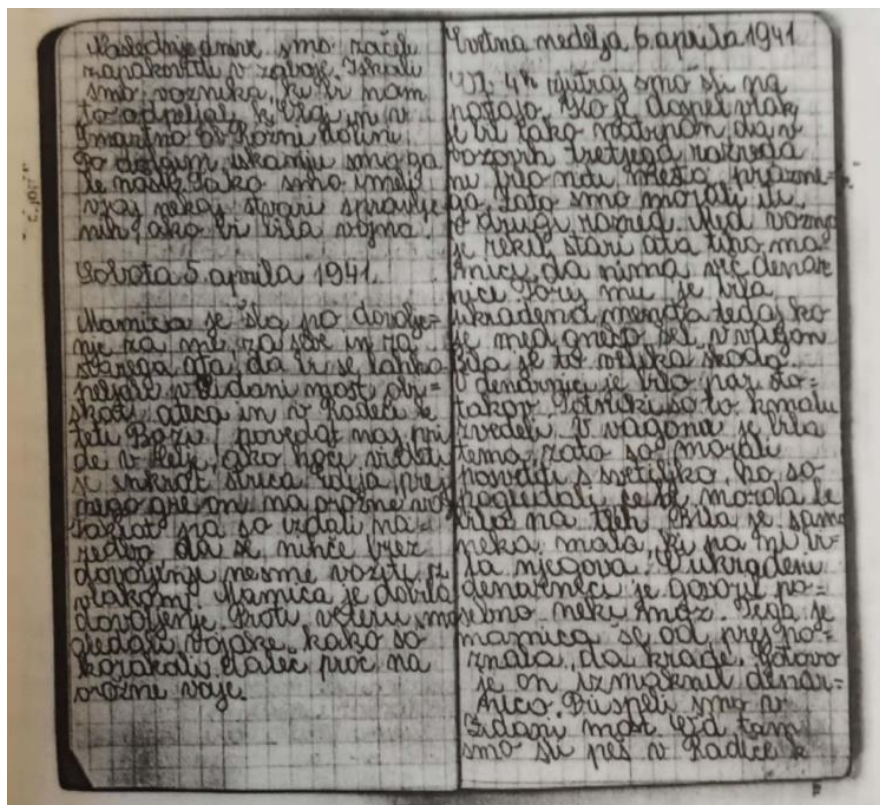 Naslednje dneve smo začeli
zapakovati v zaboje. Iskali
smo voznika, ki bi nam
to odpeljal k Vraj in v
Šmartno ob Rožni dolini.
Po dolgem iskanju smo ga
le našli. Tako smo imeli
vsaj nekaj stvari spravlje
nih, ako bi bila vojna.
Sobota 5. aprila 1941.
Mamica je šla po dovolje=
nje za me, za sebe in za
starega ata, da bi se lahko
peljali v Zidani most obi=
skat ateca in v Radeče k
teti Bozi povedat naj pri
de v Celje, ako hoče videti
še enkrat strica
nego gre on na orožne vaj
Takrat pa so izdali na=
redbo da se nihče brez
dovoljenja ne sme voziti z
vlakom. Mamica je dobila
dovoljenje. Proti večeru smo
gledali vojake, kako so
korakali daleč proč na
orožne vaje.
Cvetna nedelja 6. aprila 1941
Ob 4h zjutraj smo šli na
postajo. Ko je dospel vlak
je bil tako natrpan da v
vozovih tretjega razreda
ni bilo niti mesta prazne=
ga. Zato smo morali iti
v drugi razred. Med vožnjo
je rekel stari ata tiho ma=
mici, da nima več denar
nice. Torej mu je bila
ukradena menda tedaj ko
je med gnečo šel v vagon
Bila je to velika škoda.
V denarnici je bilo par sto=
takov. Potniki so to kmalu
zvedeli. V vagonu je bila
tema, zato so morali
posvetiti s svetiljko, ko so
pogledali če bi morda le
bila na tleh. Bila je samo
neka mala, ki pa ni bi=
la njegova. O ukradeni
denarnici je govoril po=
sebno neki mož. Tega je
mamica že od prej po=
znala, da krade. Gotovo
je on izmaknil denar=
nico. Dospeli smo v
Zidani most. Od tam
smo šli peš v Radeče k